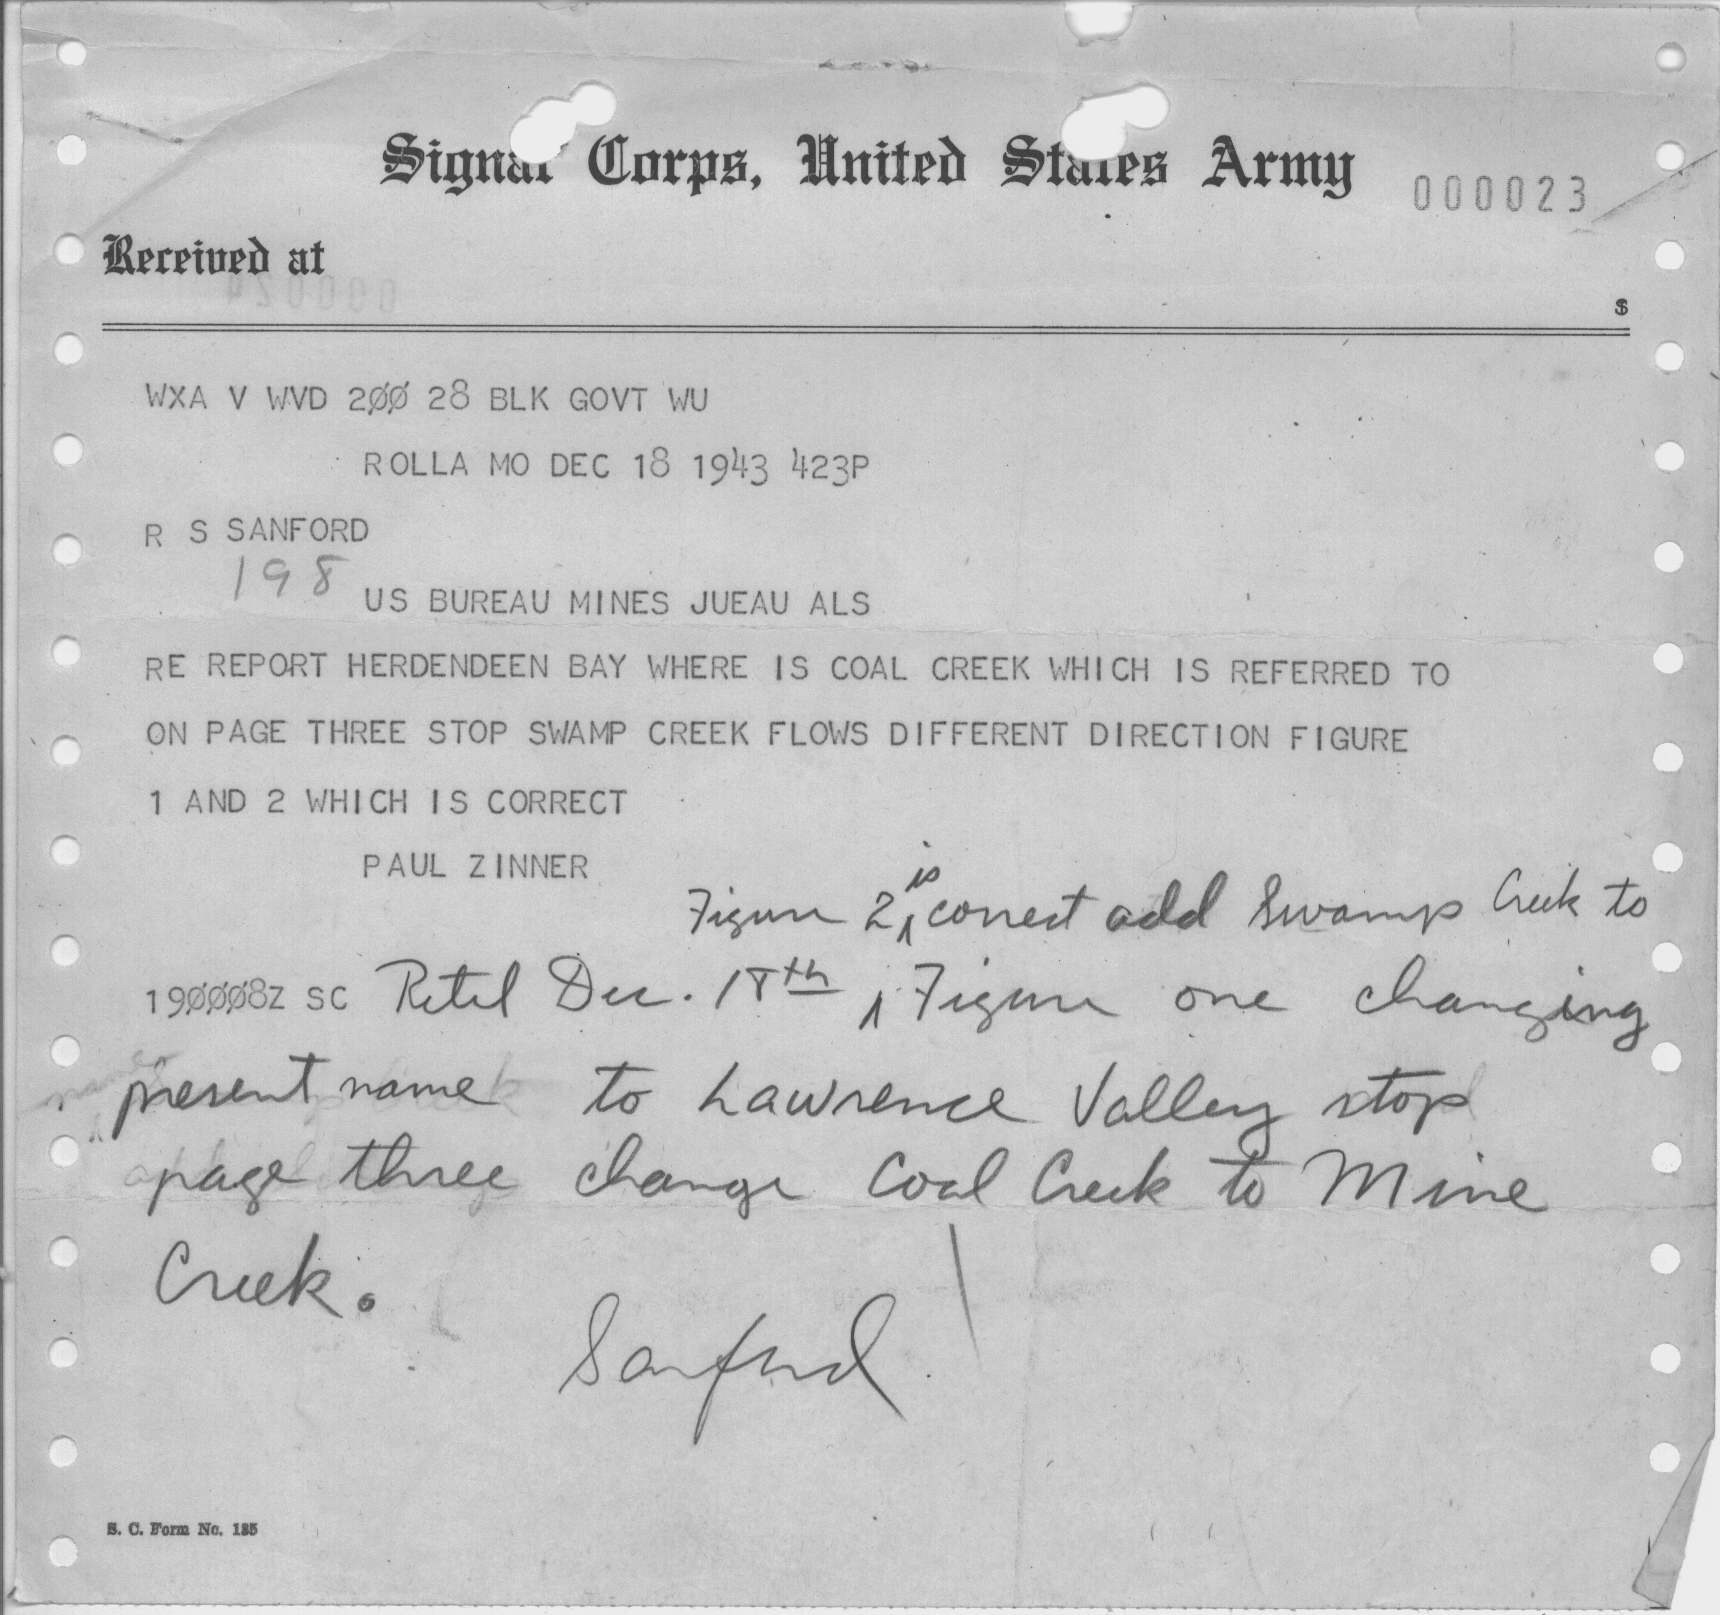 Signal Corps, United States Army 000023
Received at
$
WXA V WVD 2ØØ 28 BLK GOVT WU
ROLLA MO DEC 18 1943 423P
R S SANFORD
198
US BUREAU MINES JUEAU ALS
RE REPORT HERDENDEEN BAY WHERE IS COAL CREEK WHICH IS REFERRED TO
ON PAGE THREE STOP SWAMP CREEK FLOWS DIFFERENT DIRECTION FIGURE
1 AND 2 WHICH IS CORRECT
PAUL ZINNER
is
Figure 2 correct add Swamp Creek to
19ØØØ8Z SC Retel Dec. 18th Figure one changing
present name to Lawrence Valley stop
page three change Coal Creek to Mine
Creek.
Sanford
S. C. Form No. 135